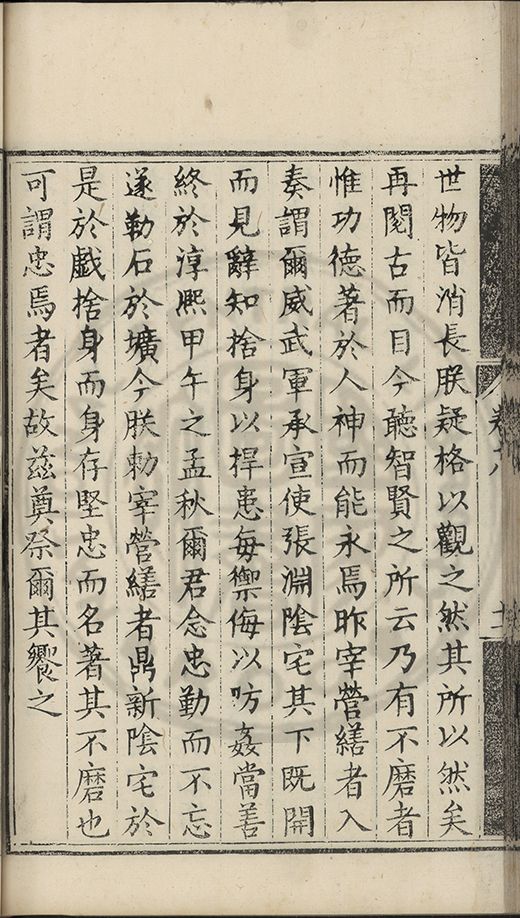 世物皆消長朕疑格以觀之然其所以然矣
再閱古而目今聽智賢之所云乃有不磨者
惟功德著於人神而能永焉昨宰營繕者入
奏謂爾威武軍承宣使張淵陰宅其下既開
而見辭知捨身以捍患每禦侮以防姦當善
終於淳熙甲午之孟秋爾君念忠勤而不忘
遂勒石於壙今朕勅宰營繕者鼎新陰宅於
是於戲捨身而身存堅忠而名著其不磨也
可謂忠焉者矣故茲奠祭爾其饗之
卷六
十二